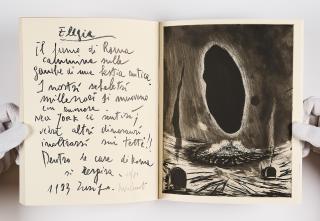 Elegia
il fiume di Roma
cammina sulle
gambe di una bestia antica.
I nostri scheletri
millenari si muovono
con amore.
New York ci sentirà,
vedrà altri dinosauri
inoltrarsi sui tetti!!
Dentro le case di Roma
si respira.